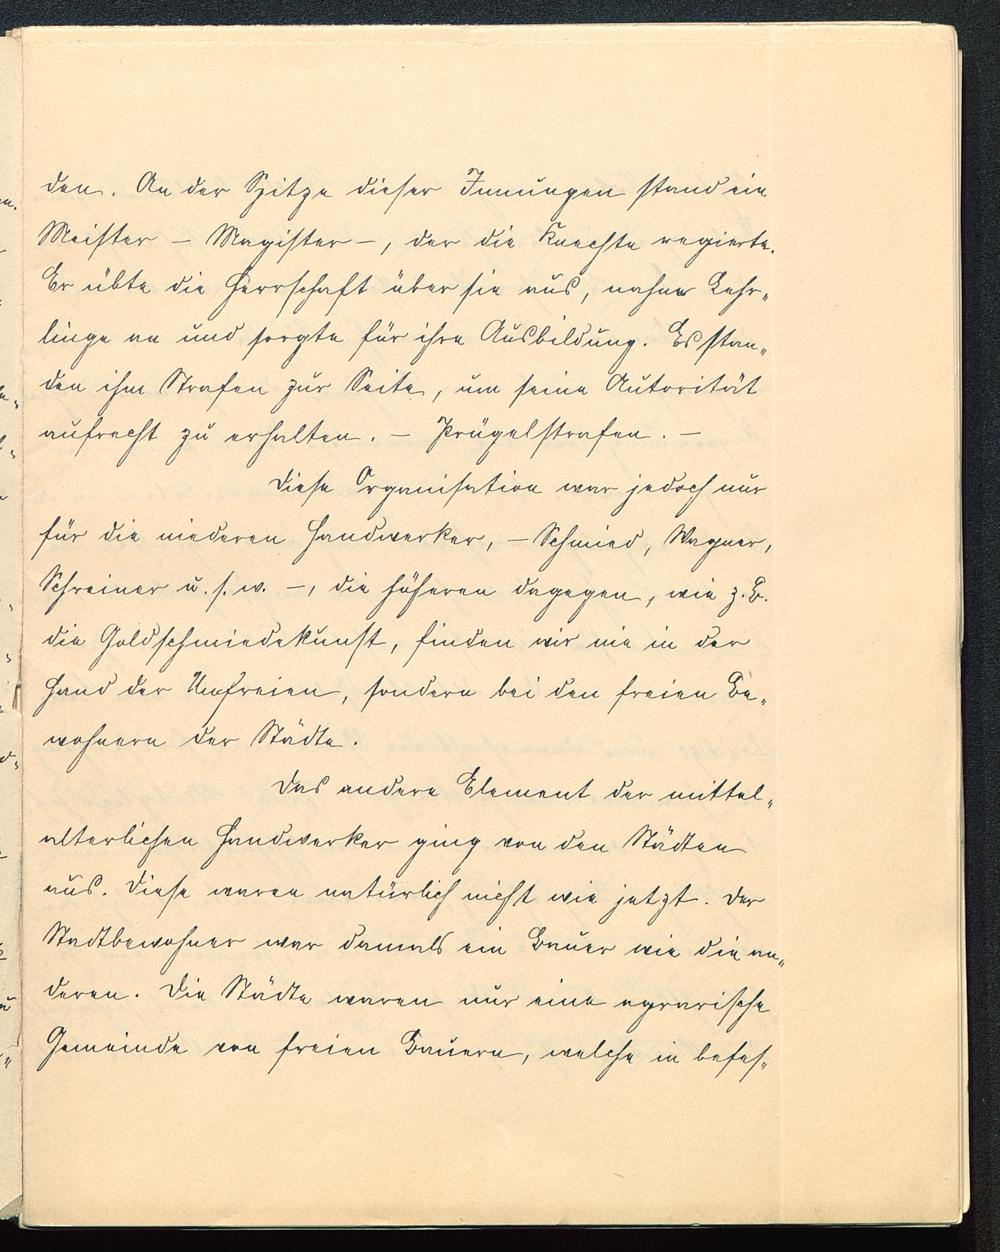 den. An der Spitze dieser Innungen stand ein
Meister – Magister –, der die Knechte regierte.
Er übte die Herrschaft über sie aus, nahm Lehr-
linge an und sorgte für ihre Ausbildung. Es stan-
den ihm Strafen zur Seite, um seine Autorität
aufrecht zu erhalten. – Prügelstrafen. –
Diese Organisation war jedoch nur
für die niederen Handwerker, – Schmied, Wagner,
Schreiner u. s. w. –, die höheren dagegen, wie z. B.
die Goldschmiedekunst, finden wir nie in der
Hand der Unfreien, sondern bei den freien Be-
wohnern der Städte.
Das andere Element der mittel-
alterlichen Handwerker ging von den Städten
aus. Diese waren natürlich nicht wie jetzt. Der
Stadtbewohner war damals ein Bauer wie die an-
deren. Die Städte waren nur eine agrarische
Gemeinde von freien Bauern, welche in befes-